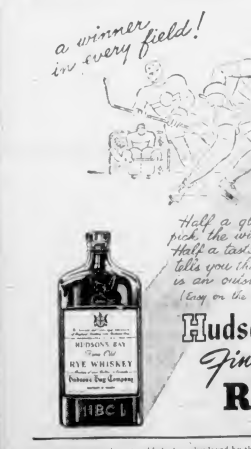 a winner
in every field!
Half a g
pick the wi
Half a tast
tells you th
is an outs
(Easy on the
Hudso
Fin
R
HUDSONS BAY
Fine Old
RYE WHISKEY
Hudsons Bay Company
HBC